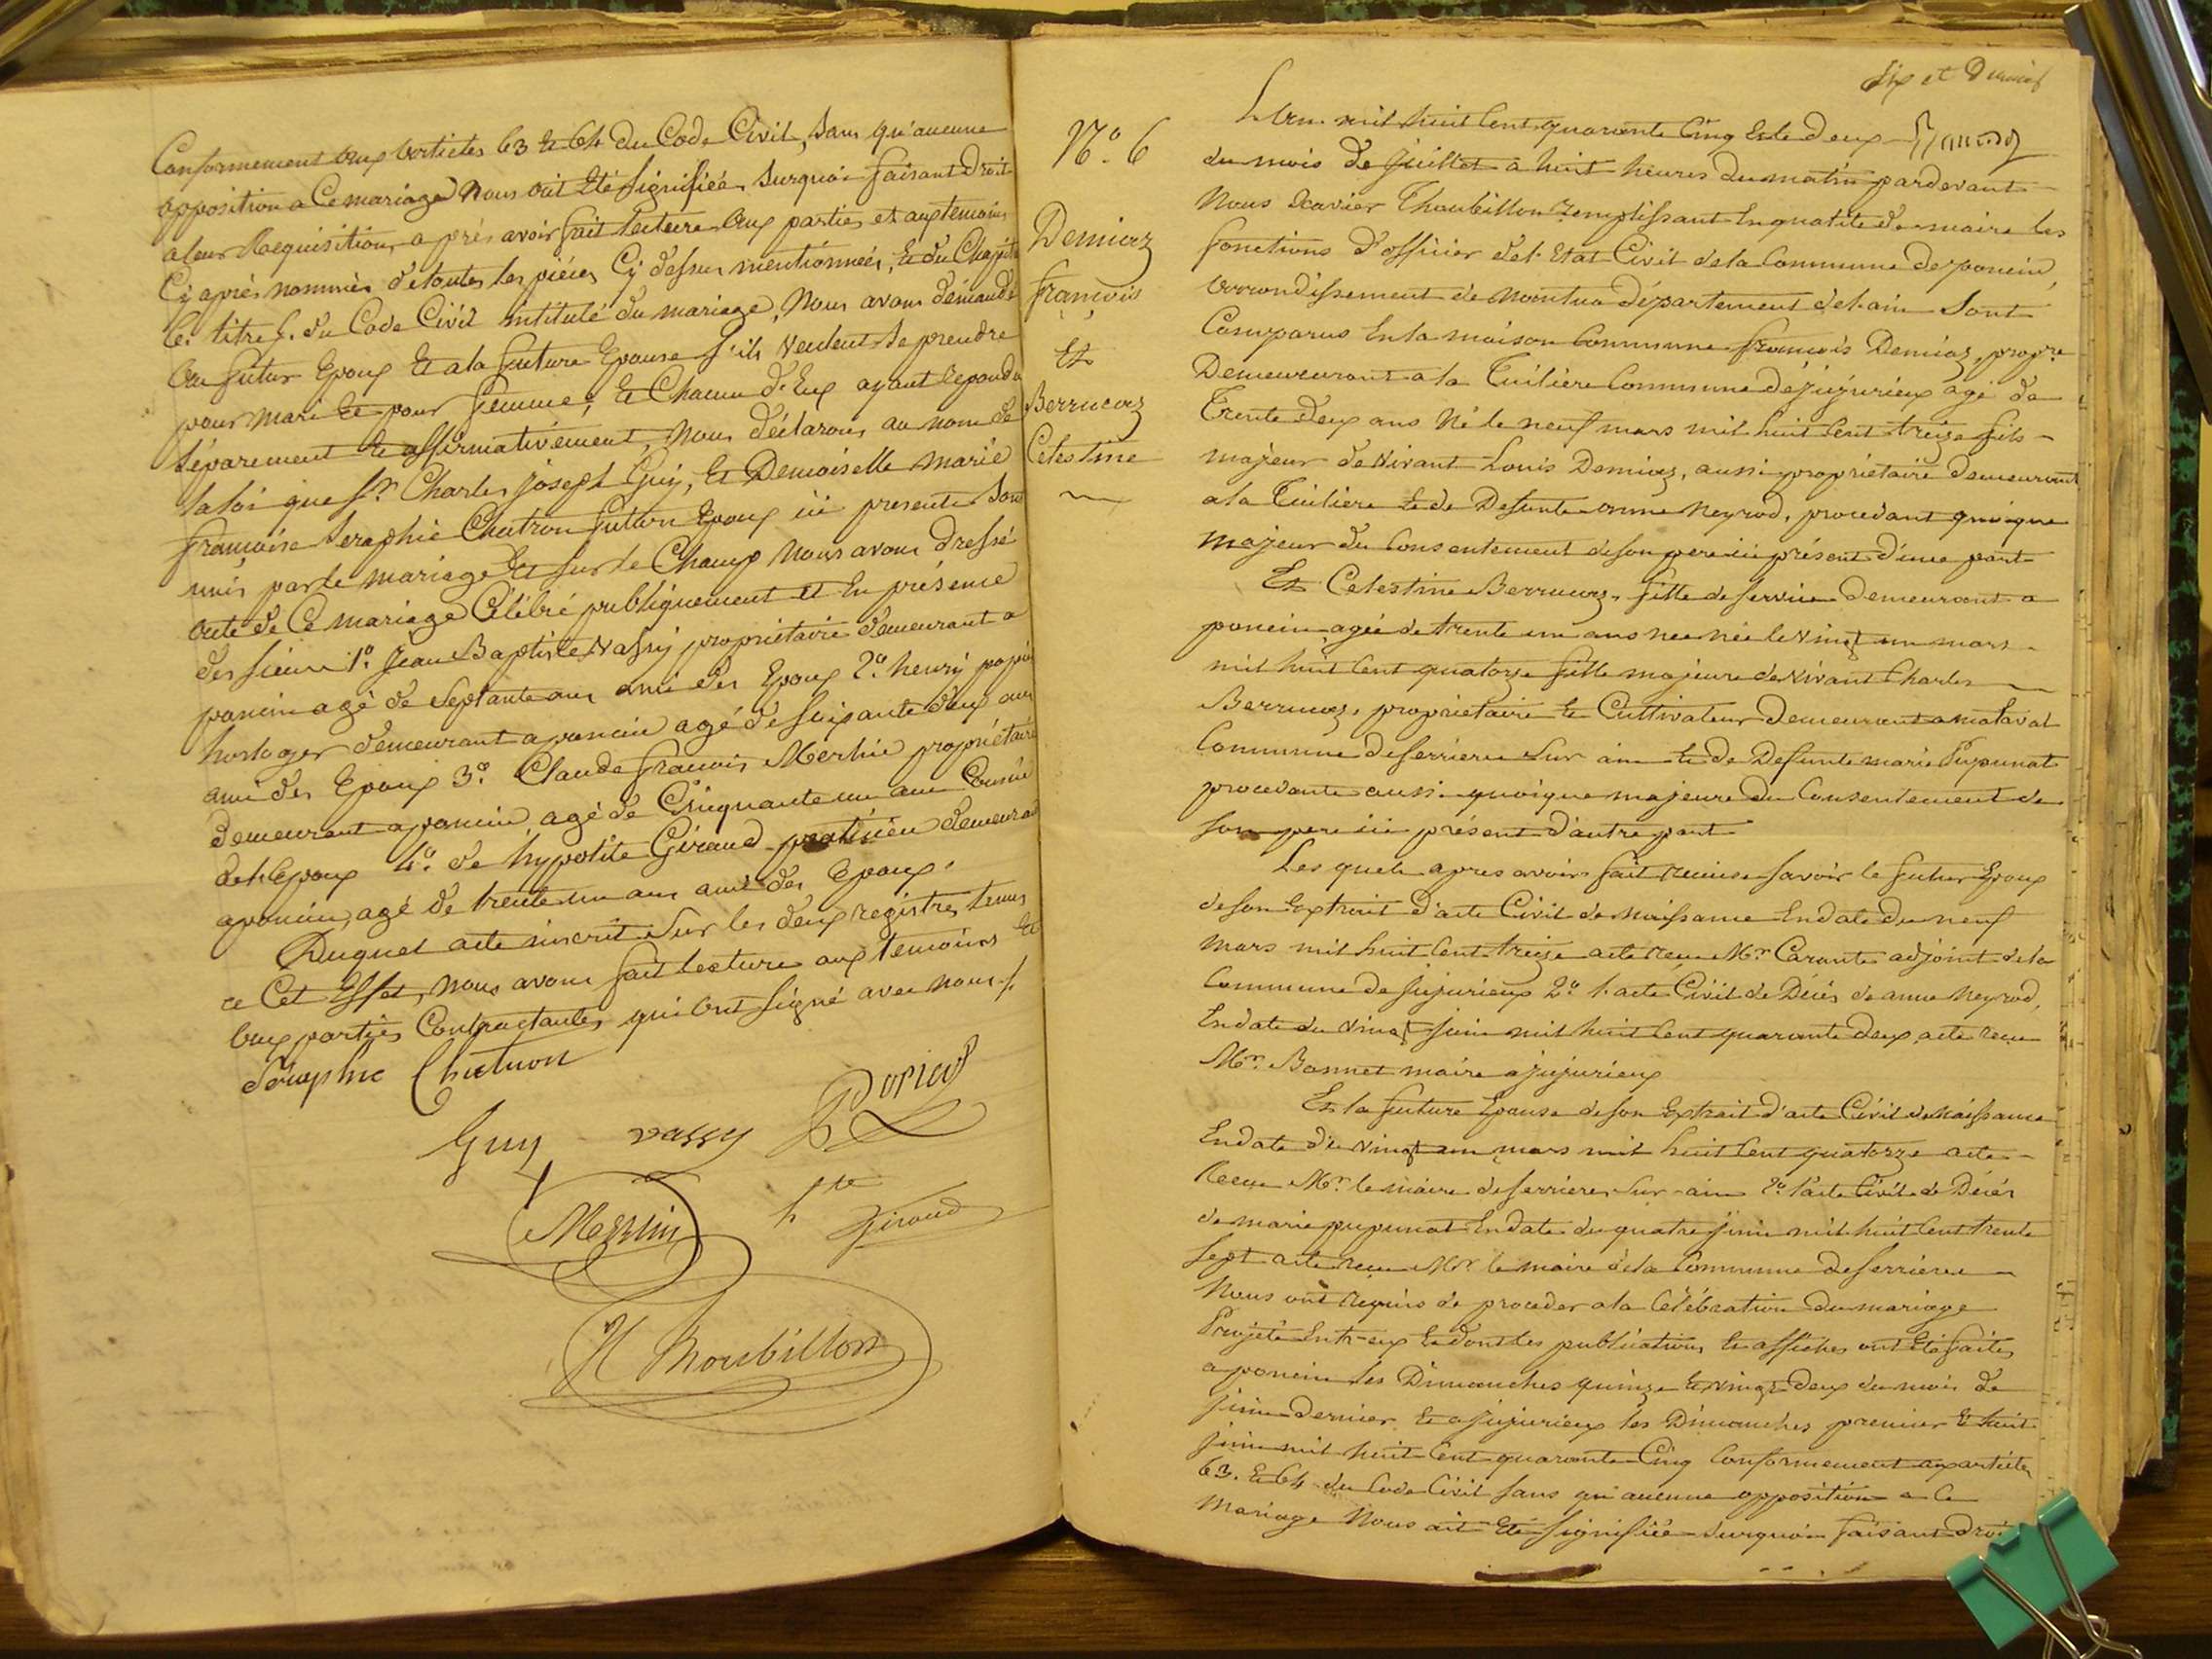 Conformement aux articles 63 et 64 du Code Civil, sans qu'aucune
opposition a Ce mariage Nous ait Eté signifiée, surquoi faisant droit
a leur Requisition, après avoir fait lecture aux parties et aux temoins
Cy après nommés de toutes les pièces Cy dessus mentionnées, et du Chapitre
6. titre 5. du Code Civil intitulé du mariage, Nous avons demandé
au futur Epoux Et a la future Epouse s'ils veulent se prendre
pour mari Et pour femme, Et Chacun d'Eux ayant repondu
séparement Et affirmativement, Nous déclarons au nom de
la loi que Sr. Charles joseph Guy, Et Demoiselle marie
françoise Seraphie Chatron futurs Epoux ici presents sont
unis par le mariage Et sur le Champ Nous avons dressé
acte de Ce mariage Célébré publiquement et En présence
des sieurs 1º. Jean Baptiste Vassy propriétaire demeurant a
poncin agé de Septante ans ami des Epoux 2º. henry
horloger demeurant a poncin agé de soixante deux ans
ami des Epoux 3º. Claude françois Merlin propriétaire
demeurant a poncin, agé de Cinquante un ans Cousin
de l'Epoux 4º. de hypolite Giraud praticien demeurant
a poncin, agé de trente un ans ami des Epoux.
Duquel acte inscrit Sur les deux registres tenus
a Cet Effet, nous avons fait lecture aux temoins Et
aux parties Contractantes qui Ont signé avec nous
Séraphie Chatron
Guy vassy
Merlin hte Giraud
X Thoubillon
Six et Dernier
Nº. 6
Demiaz
françois
Et
Berrucaz
Celestine
L'an mil huit Cent quarante Cinq Et le deux
du mois de Juillet a huit heures du matin pardevant
Nous Xavier Thoubillon remplissant En qualité de maire les
fonctions d'officier de l'Etat Civil de la Commune de poncin,
arrondissement de Nantua département de l'ain Sont
Comparus En la maison Commune françois Demiaz, propre.
Demeurant a la Tuiliere Commune de jujurieux agé de
Trente deux ans Né le neuf mars mil huit Cent treize fils
majeur de vivant Louis Demiaz, aussi propriétaire demeurant
a la Tuiliere Et de Defunte anne Neyrod, procedant quoique
majeur du Consentement de son pere ici présent d'une part
Et Celestine Berrucaz, fille de service demeurant a
poncin agée de trente un ans nee née le vingt un mars
mil huit Cent quatorze fille majeure de vivant Charles
Berrucaz, propriétaire Et Cultivateur Demeurant a
Commune de serrieres sur ain Et de Defunte marie Pupunat
procedante aussi quoique majeure du Consentement de
son pere ici présent d'autre part
Les quels apres avoir fait remise savoir le futur Epoux
de son Extrait d'acte Civil de Naissance En date du neuf
mars mil huit Cent treize acte recu Mr. Carante adjoint de la
Commune de Jujurieux 2º. l'acte Civil de Décés de anne Neyrod,
En date du vingt juin mil huit Cent quarante deux acte recu
Mr. Bonnet maire a jujurieux
Et la future Epouse de son Extrait d'acte Civil de Naissance
En date du vingt un mars mil huit Cent quatorze acte
Recu Mr. le maire de serrieres sur ain 2º. l'acte Civil de Décés
de marie pupunat En date du quatre juin mil huit Cent trente
sept acte recu Mr. le maire de la Commune de serrieres
Nous ont requis de proceder a la Célébration du mariage
Projeté Entr-eux Et dont les publications Et affiches ont Eté faites
a poncin les Dimanches quinze Et vingt deux du mois de
juin dernier Et a jujurieux les Dimanches premier Et huit
juin mil huit Cent quarante Cinq Conformement aux articles
63. Et 64 du Code Civil sans qu'aucune opposition a Ce
mariage Nous ait Eté signifiée surquoi faisant droit